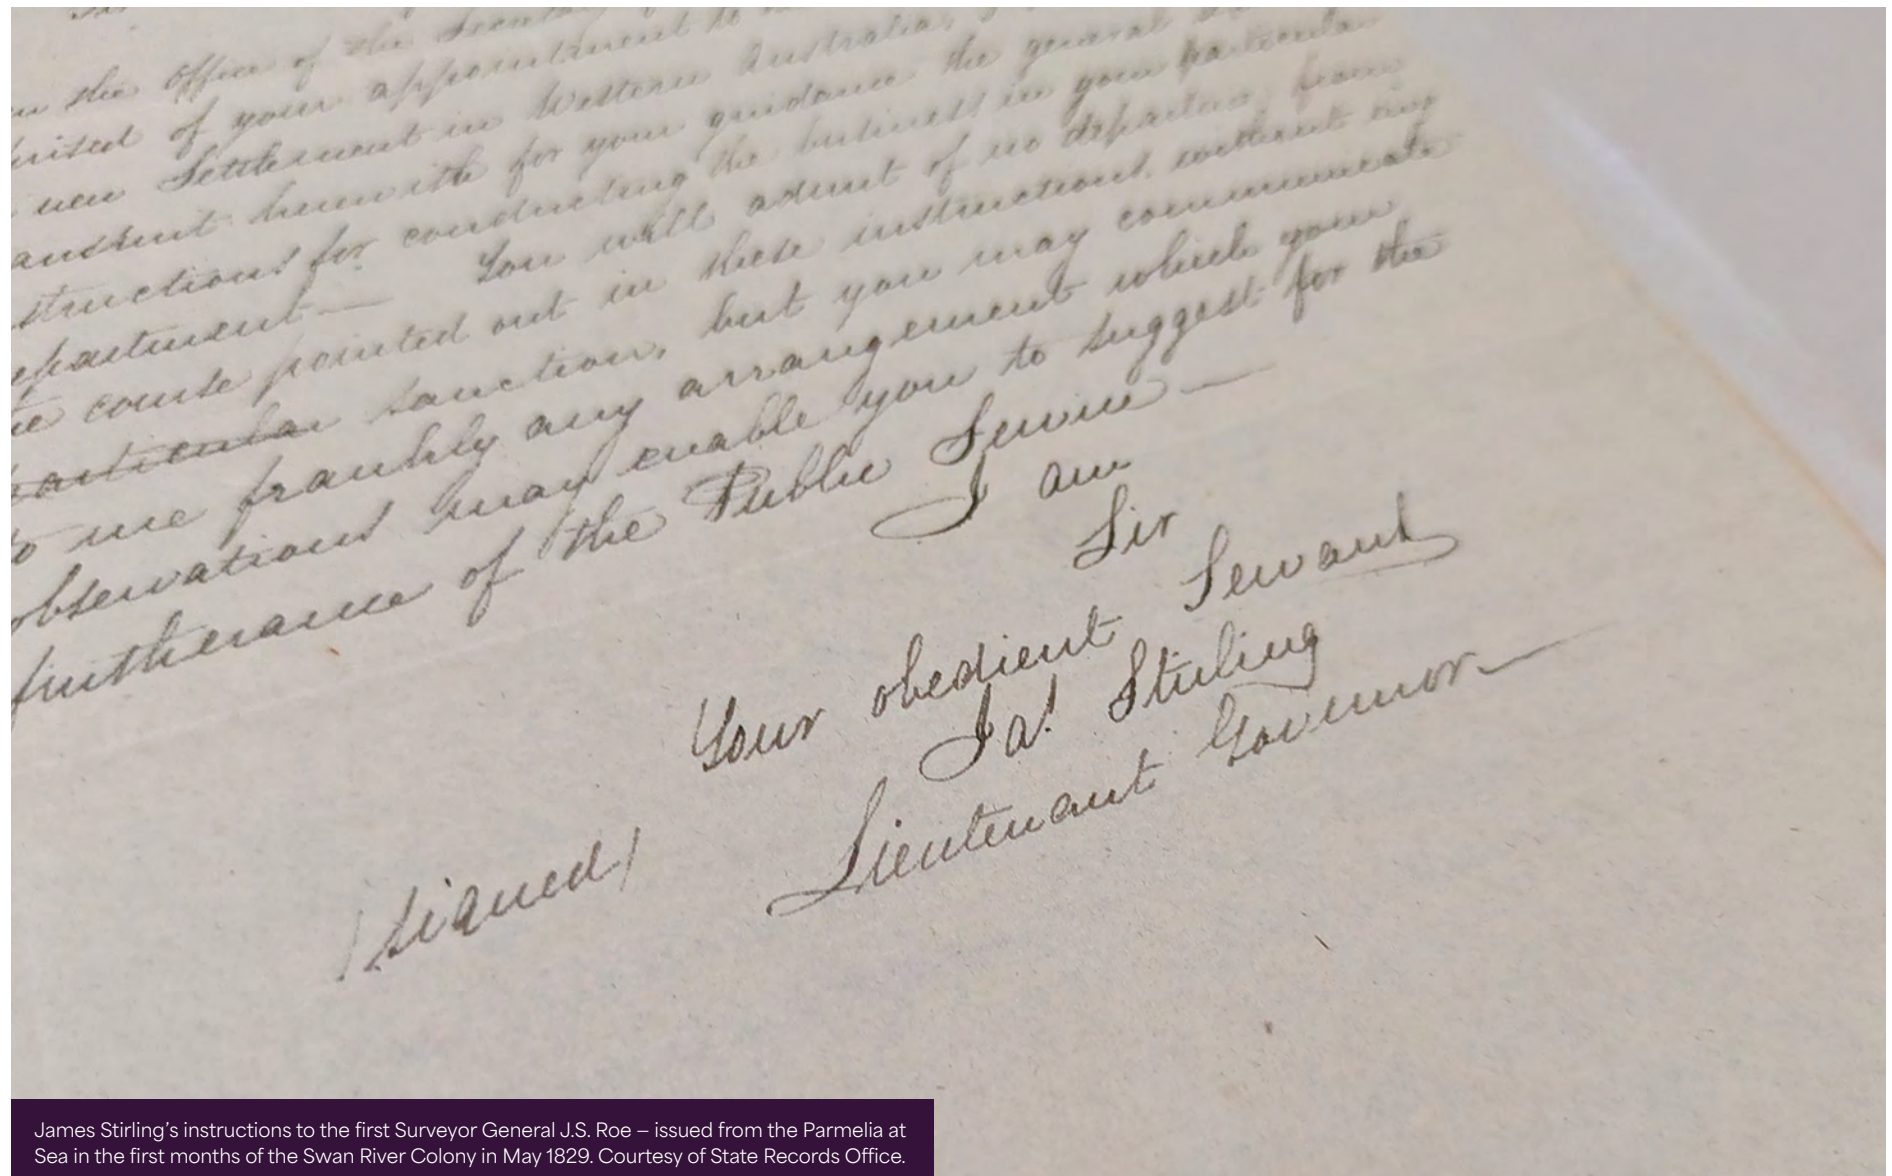 the office of the Secretary
of your appointment to
new Settlement in Western Australia,
herewith for your guidance the general
structions for conducting the business in your particular
epartment — You will admit of no departure from
course pointed out in these instructions without my
particular sanction, but you may communicate
to me frankly any arrangement which your
observations may enable you to suggest for the
furtherance of the Public Service —
I am
Sir
Your obedient Servant
Jas. Stirling
Lieutenant Governor
(signed)
James Stirling’s instructions to the first Surveyor General J.S. Roe – issued from the Parmelia at
Sea in the first months of the Swan River Colony in May 1829. Courtesy of State Records Office.